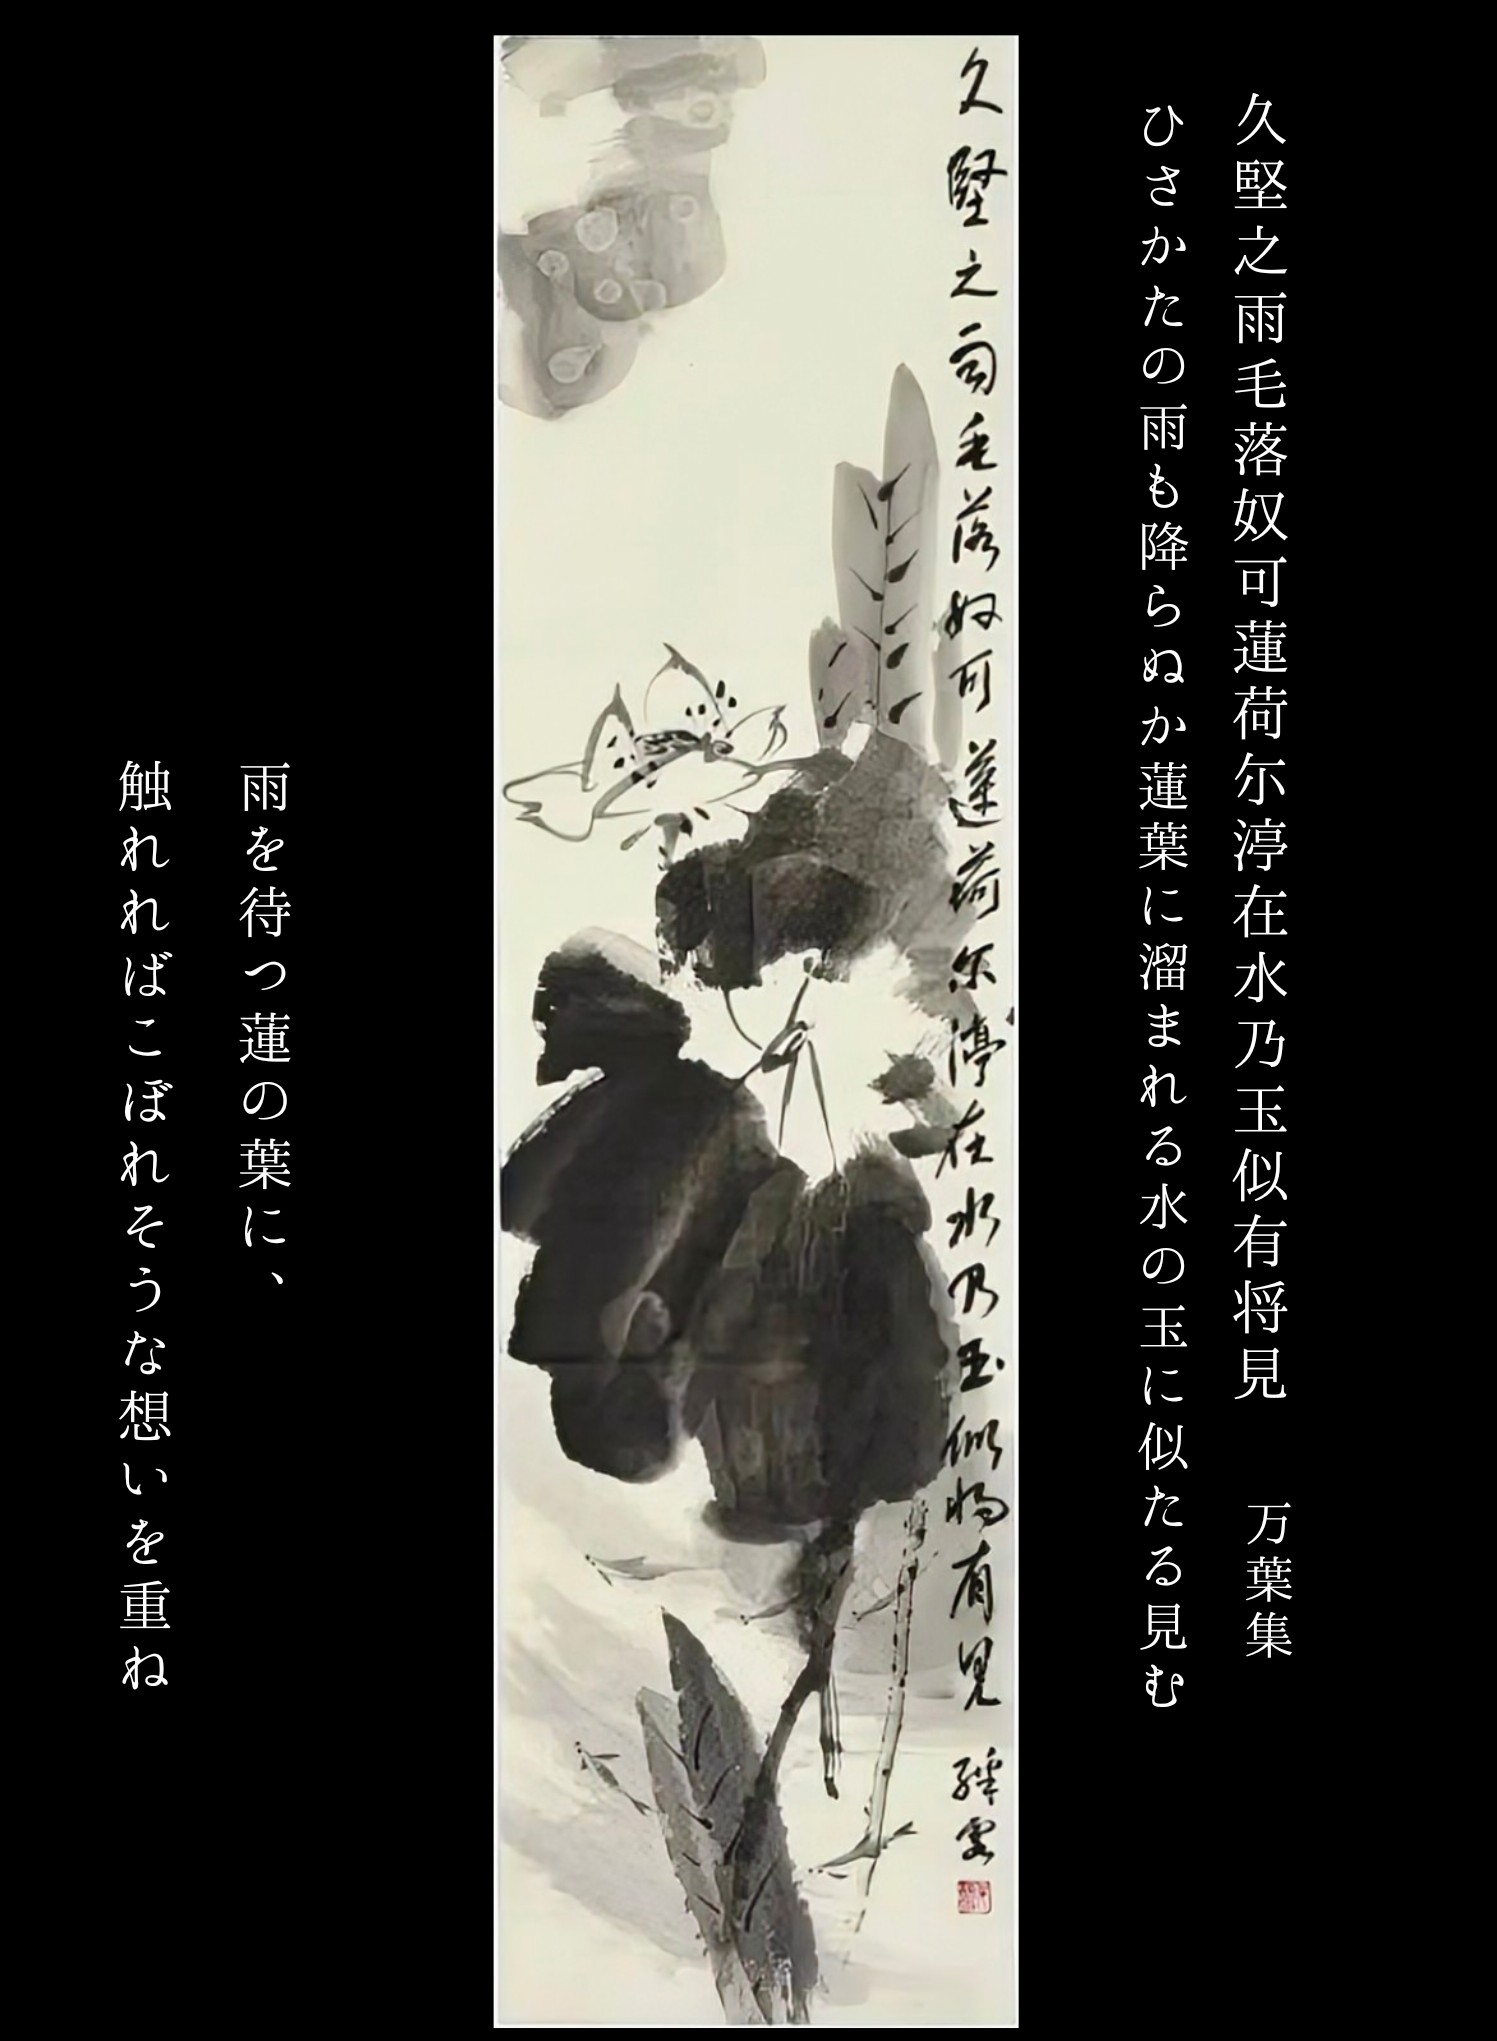 久堅之雨毛落奴可蓮荷尓渟在水乃玉似有将見
万葉集
ひさかたの雨も降らぬか蓮葉に溜まれる水の玉に似たる見む
久堅之雨毛落奴可蓮荷尓渟在水乃玉似将有見
雨を待つ蓮の葉に、
触れればこぼれそうな想いを重ね